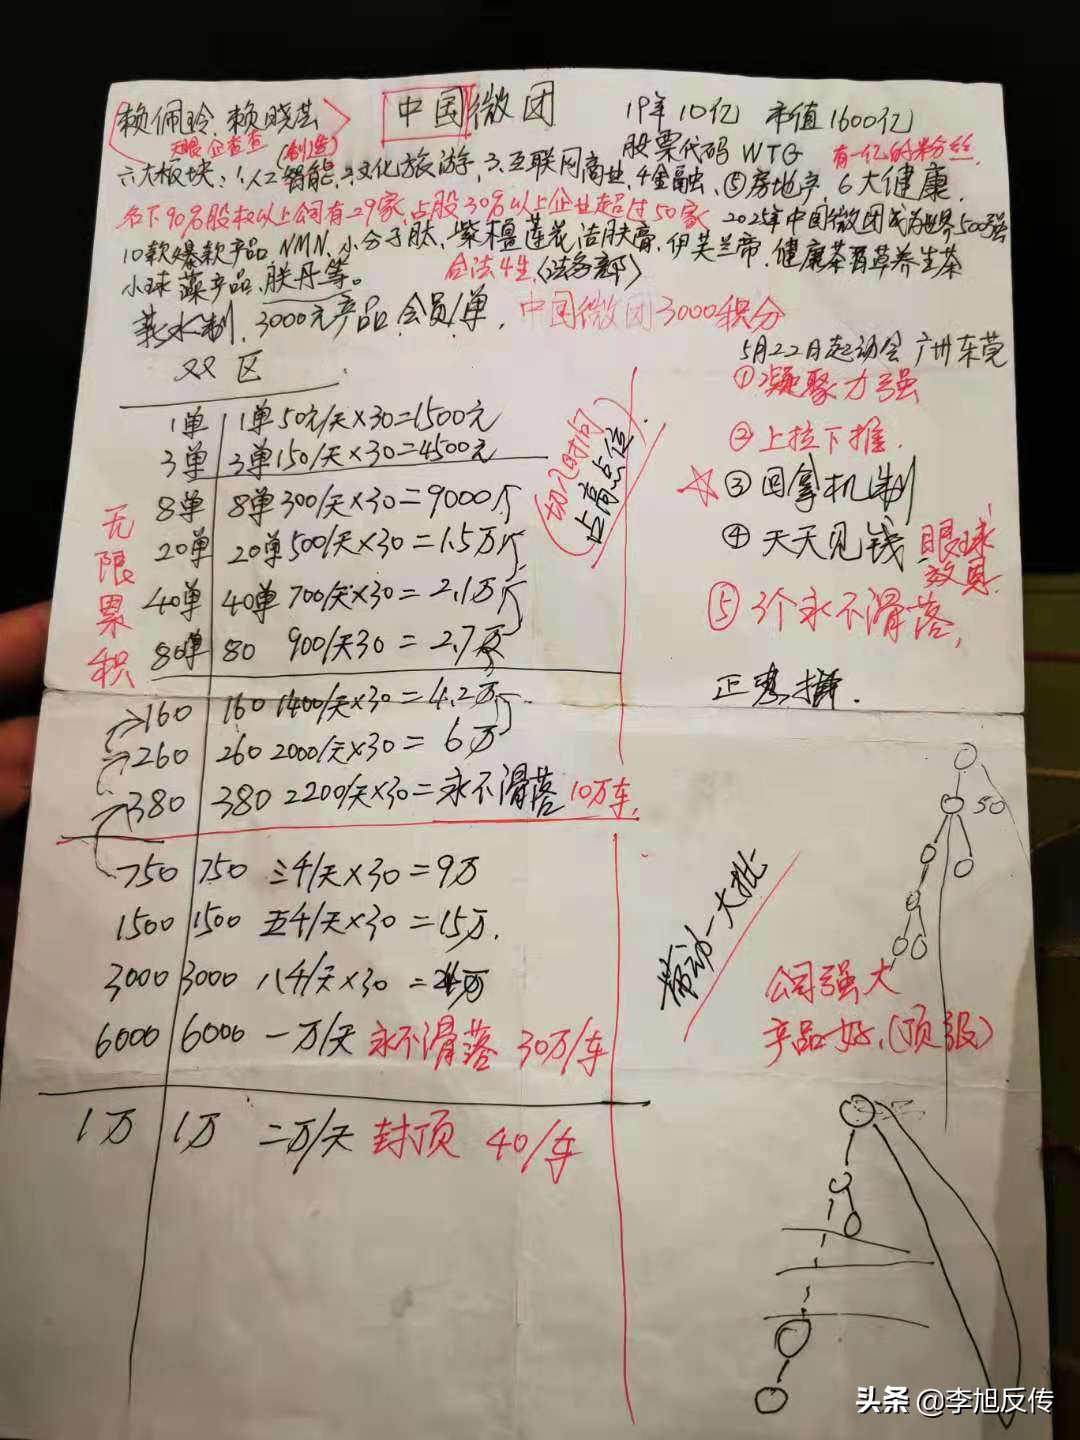 赖佩玲、赖晓芸 中国微团 19年10亿 市值1600亿
天眼企查查(制造) 股票代码 WTG 有一亿的粉丝
六大板块:1.人工智能,2.文化旅游,3.互联网商业,4金融、⑤房地产,6大健康
名下90%股权以上公司有29家,占股30%以上企业超过50家 2025年中国微团成为世界500强
10款爆款产品 NMN、小分子肽,紫檀莲花洁肤膏,伊芙兰帝、健康茶百草养生茶
小球藻产品、肽丹等。合法4生(法务部)
薪水制,3000元产品会员1单,中国微团3000积分
5月22日起动会 广州东莞
双区
①凝聚力强
②上拉下推
③回拿机制
④天天见钱 眼球效果
⑤3个永不滑落,
无限累积
切入时间
占高点位
1单 1单50元/天×30=1500元
3单 3单150/天×30=4500元
8单 8单300/天×30=9000
20单 20单500/天×30=1.5万
40单 40单700/天×30=2.1万
80单 80 900/天30=2.7万
160 160 1400/天×30=4.2万
260 260 2000/天×30=6万
380 380 2200/天×30=永不滑落 10万车
750 750 三千/天×30=9万
1500 1500 五千/天×30=15万.
3000 3000 八千/天×30=
6000 6000 一万/天 永不滑落 30万/车
1万 1万 二万/天 封顶 40/车
50
带动一大批
公司强大
产品好、(顶级)
头条 @李旭反传